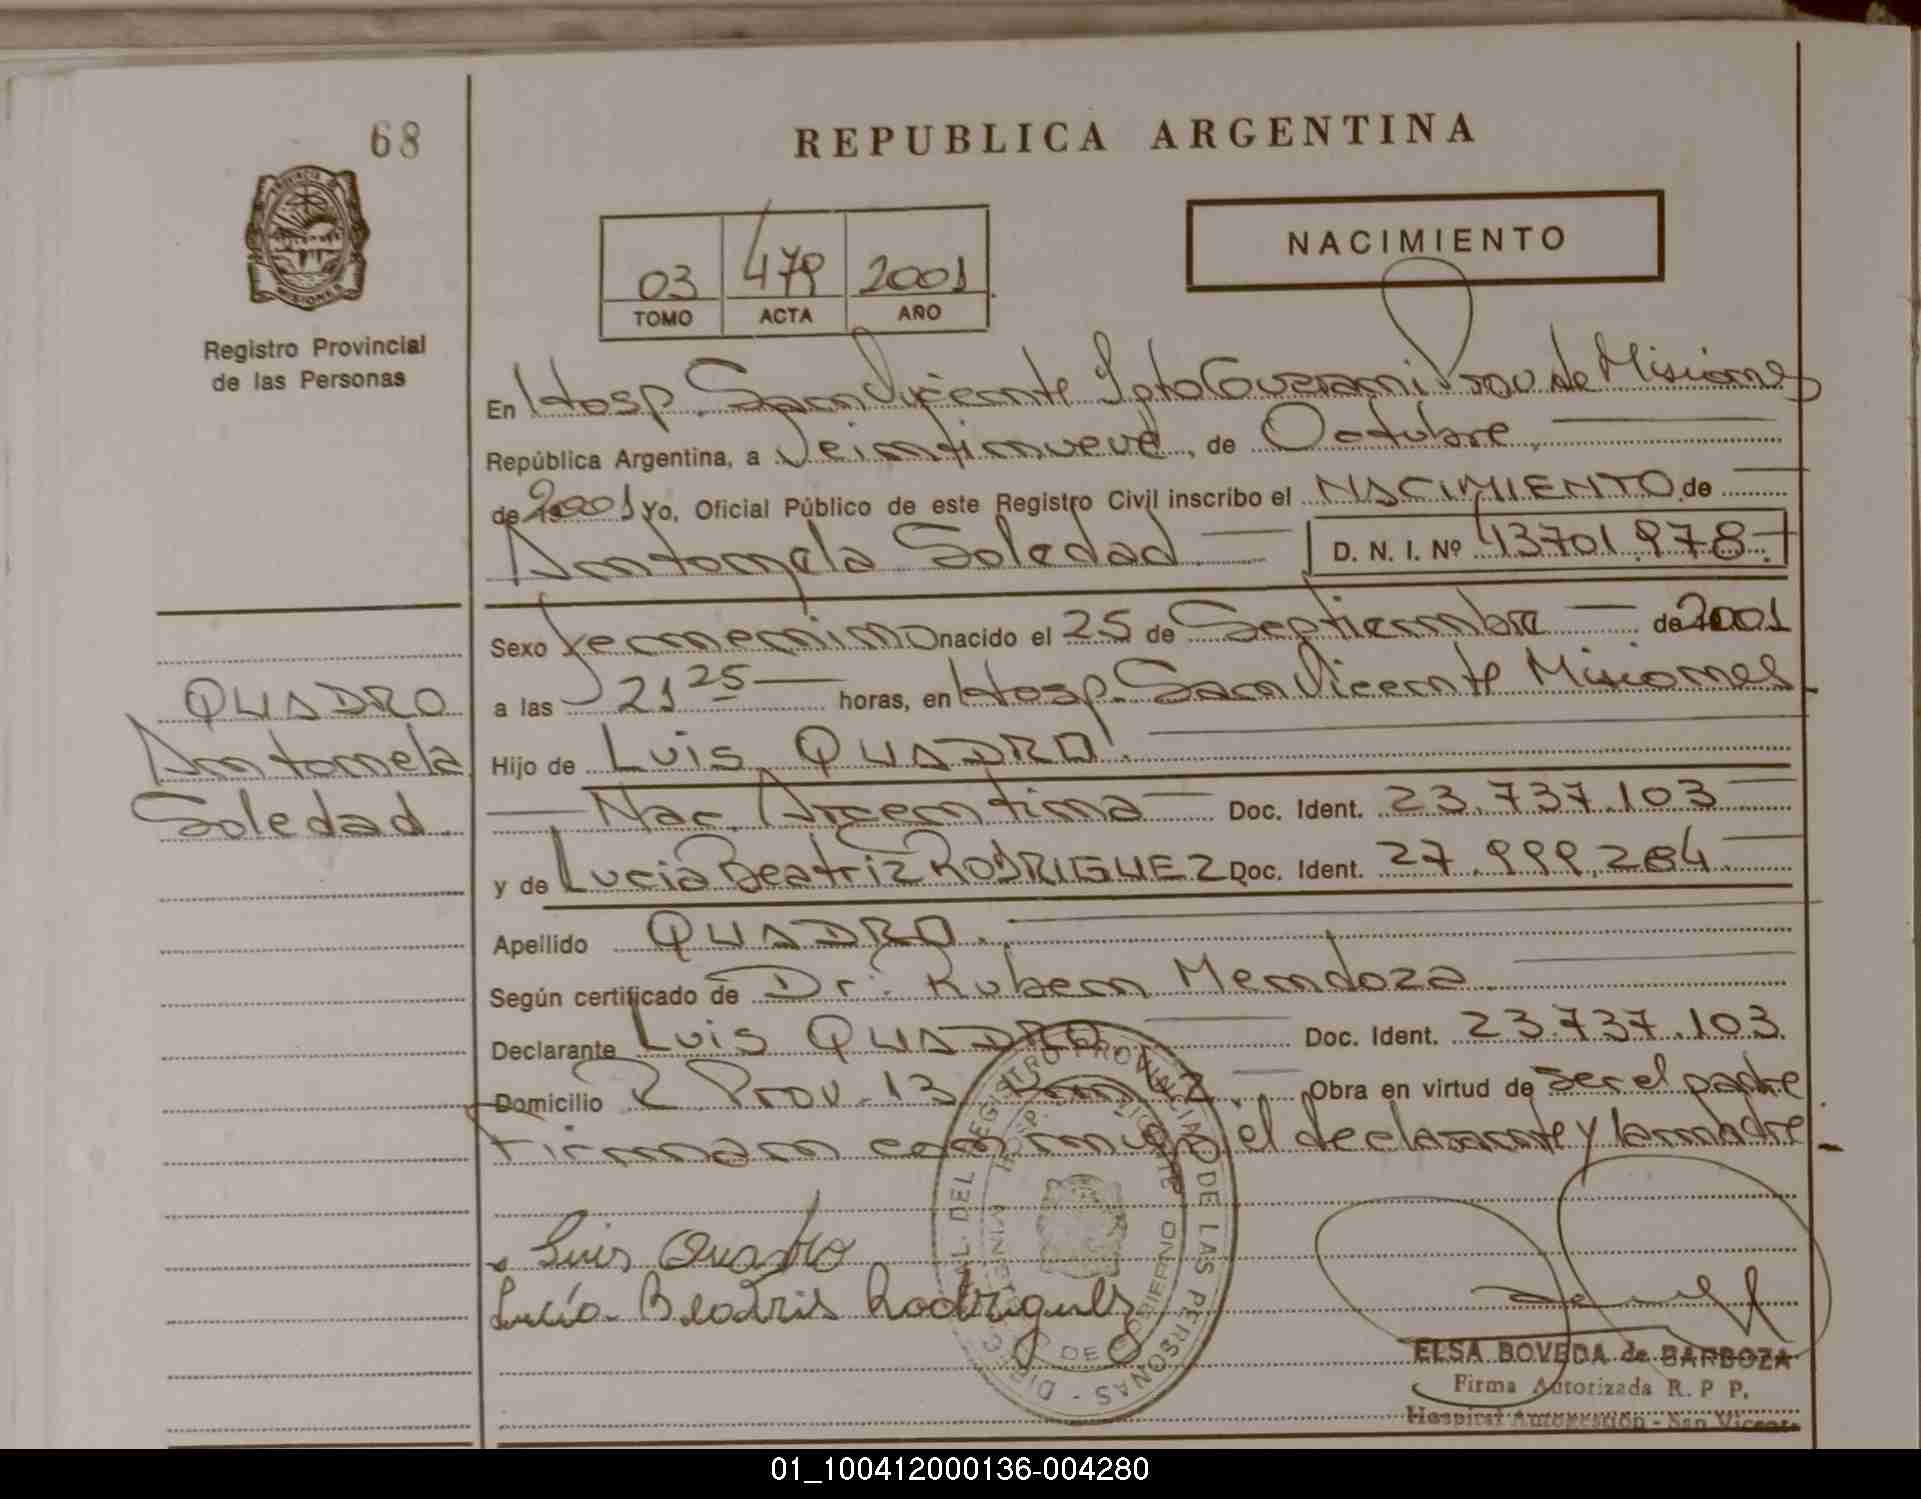 68
REPUBLICA ARGENTINA
PROVINCIA DE
MISIONES
Registro Provincial
de las Personas
03 479 2001
TOMO ACTA AÑO
NACIMIENTO
En Hosp. San Vicente Dpto Guarani Prov de Misiones
República Argentina, a Veintinueve, de Octubre,
de 2001 Yo, Oficial Público de este Registro Civil inscribo el NACIMIENTO de
Antonela Soledad D. N. I. Nº 43701.978.-
Sexo Femenino nacido el 25 de Septiembre de 2001
a las 21 25 horas, en Hosp. San Vicente Misiones
QUADRO
Antonela
Soledad
Hijo de Luis QUADRO.
Nac. Argentina Doc. Ident. 23.737.103
y de Lucia Beatriz RODRIGUEZ Doc. Ident. 27.999.284
Apellido QUADRO.
Según certificado de Dr. Ruben Mendoza
Declarante Luis QUADRO Doc. Ident. 23.737.103.
Domicilio R. Prov. 13 Obra en virtud de ser el padre
Firman conmigo el declarante y la madre
Luis Quadro
Lucía Beatris Rodrigues
DEL REGISTRO PROVINCIAL DE LAS PERSONAS
ELSA BOVEDA de BARBOZA
Firma Autorizada R. P P.
Hospital Autogestión - San Vicente
01_100412000136-004280